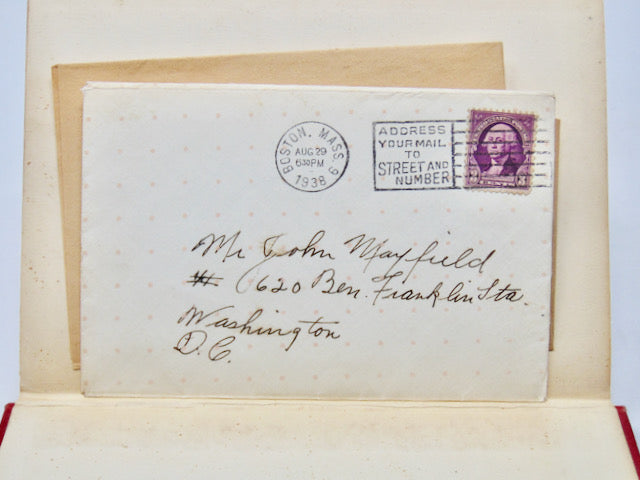 BOSTON, MASS. 9
AUG 29
630PM
1938
ADDRESS
YOUR MAIL
TO
STREET AND
NUMBER
Mr John Mayfield
1620 Ben. Franklin Sta.
Washington
D.C.